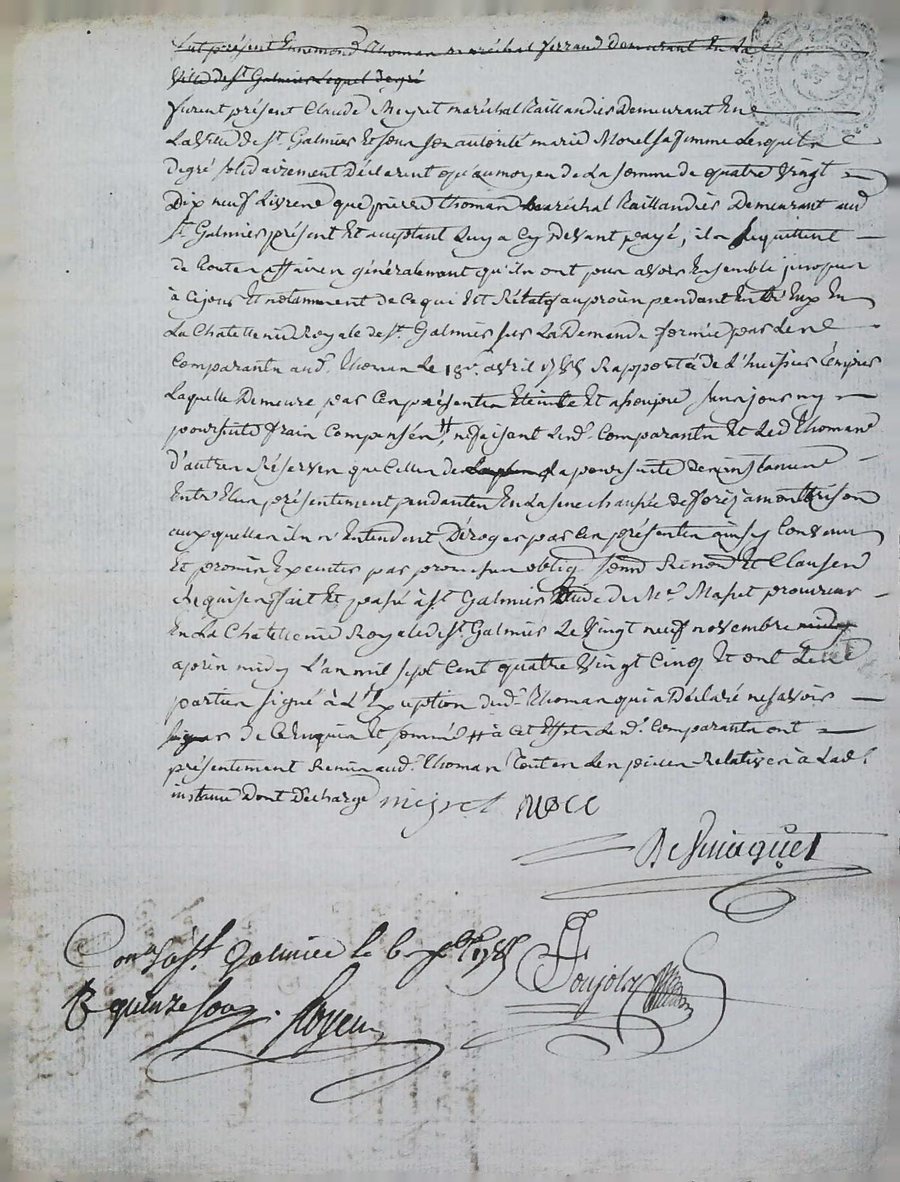 fut présent Ennemond Thoman maréchal ferrand Demeurant En La
Ville de st Galmier Lequel de gré
furent présent Claude Meyret maréchal taillandier Demeurant En
La Ville de st. Galmier Et sous son autorité marie Morel sa femme Lesquels
de gré solidairement Déclarent qu'aumoyen de La somme de quatre Vingt
Dix neuf Livres que pierre Thoman maréchal taillandier Demeurant aud
st. Galmier présent Et acceptant Luy a Cy Devant payé, ils
de toutes affaires généralement qu'ils ont pour avoir Ensemble jusques
à Ce jour Et notamment de Ce qui Est auprocès pendant Entre Eux En
La Chatellenie Royale de st. Galmier sur La Demande formée par Les
Comparants aud. Thoman Le avril Rapportée de L'huissier
Laquelle Demeure par Ces présentes Eteinte Et assoupie sans jours ny
poursuitte frais Compensés, ne faisant Lesd. Comparants Et Led Thoman
d'autres Réserves que Celles de La poursuitte des instances
Entr'Eux présentement pendantes En La sénéchaussée de forez a montbrison
auxquelles ils n'Entendent Déroger par Ces présentes ainsy Convenu
Et promis Executer par promesses oblig. Renon Et Clauses
Requises fait Et passé à st Galmier Etude de Me. Masset procureur
En La Chatellenie Royale de st. Galmier Le Vingt neuf novembre
après midy L'an mil sept Cent quatre Vingt Cinq Et ont Les
parties signé à L'Exception dud. Thoman qui a Déclaré ne savoir
signer de Ce Enquis Et sommé à Cet Effet Lesd. Comparants ont
présentement Remis aud. Thoman toutes Les pièces Relatives à Lad.
instance Dont Décharge meyret

à st. Galmier le
quinze sous